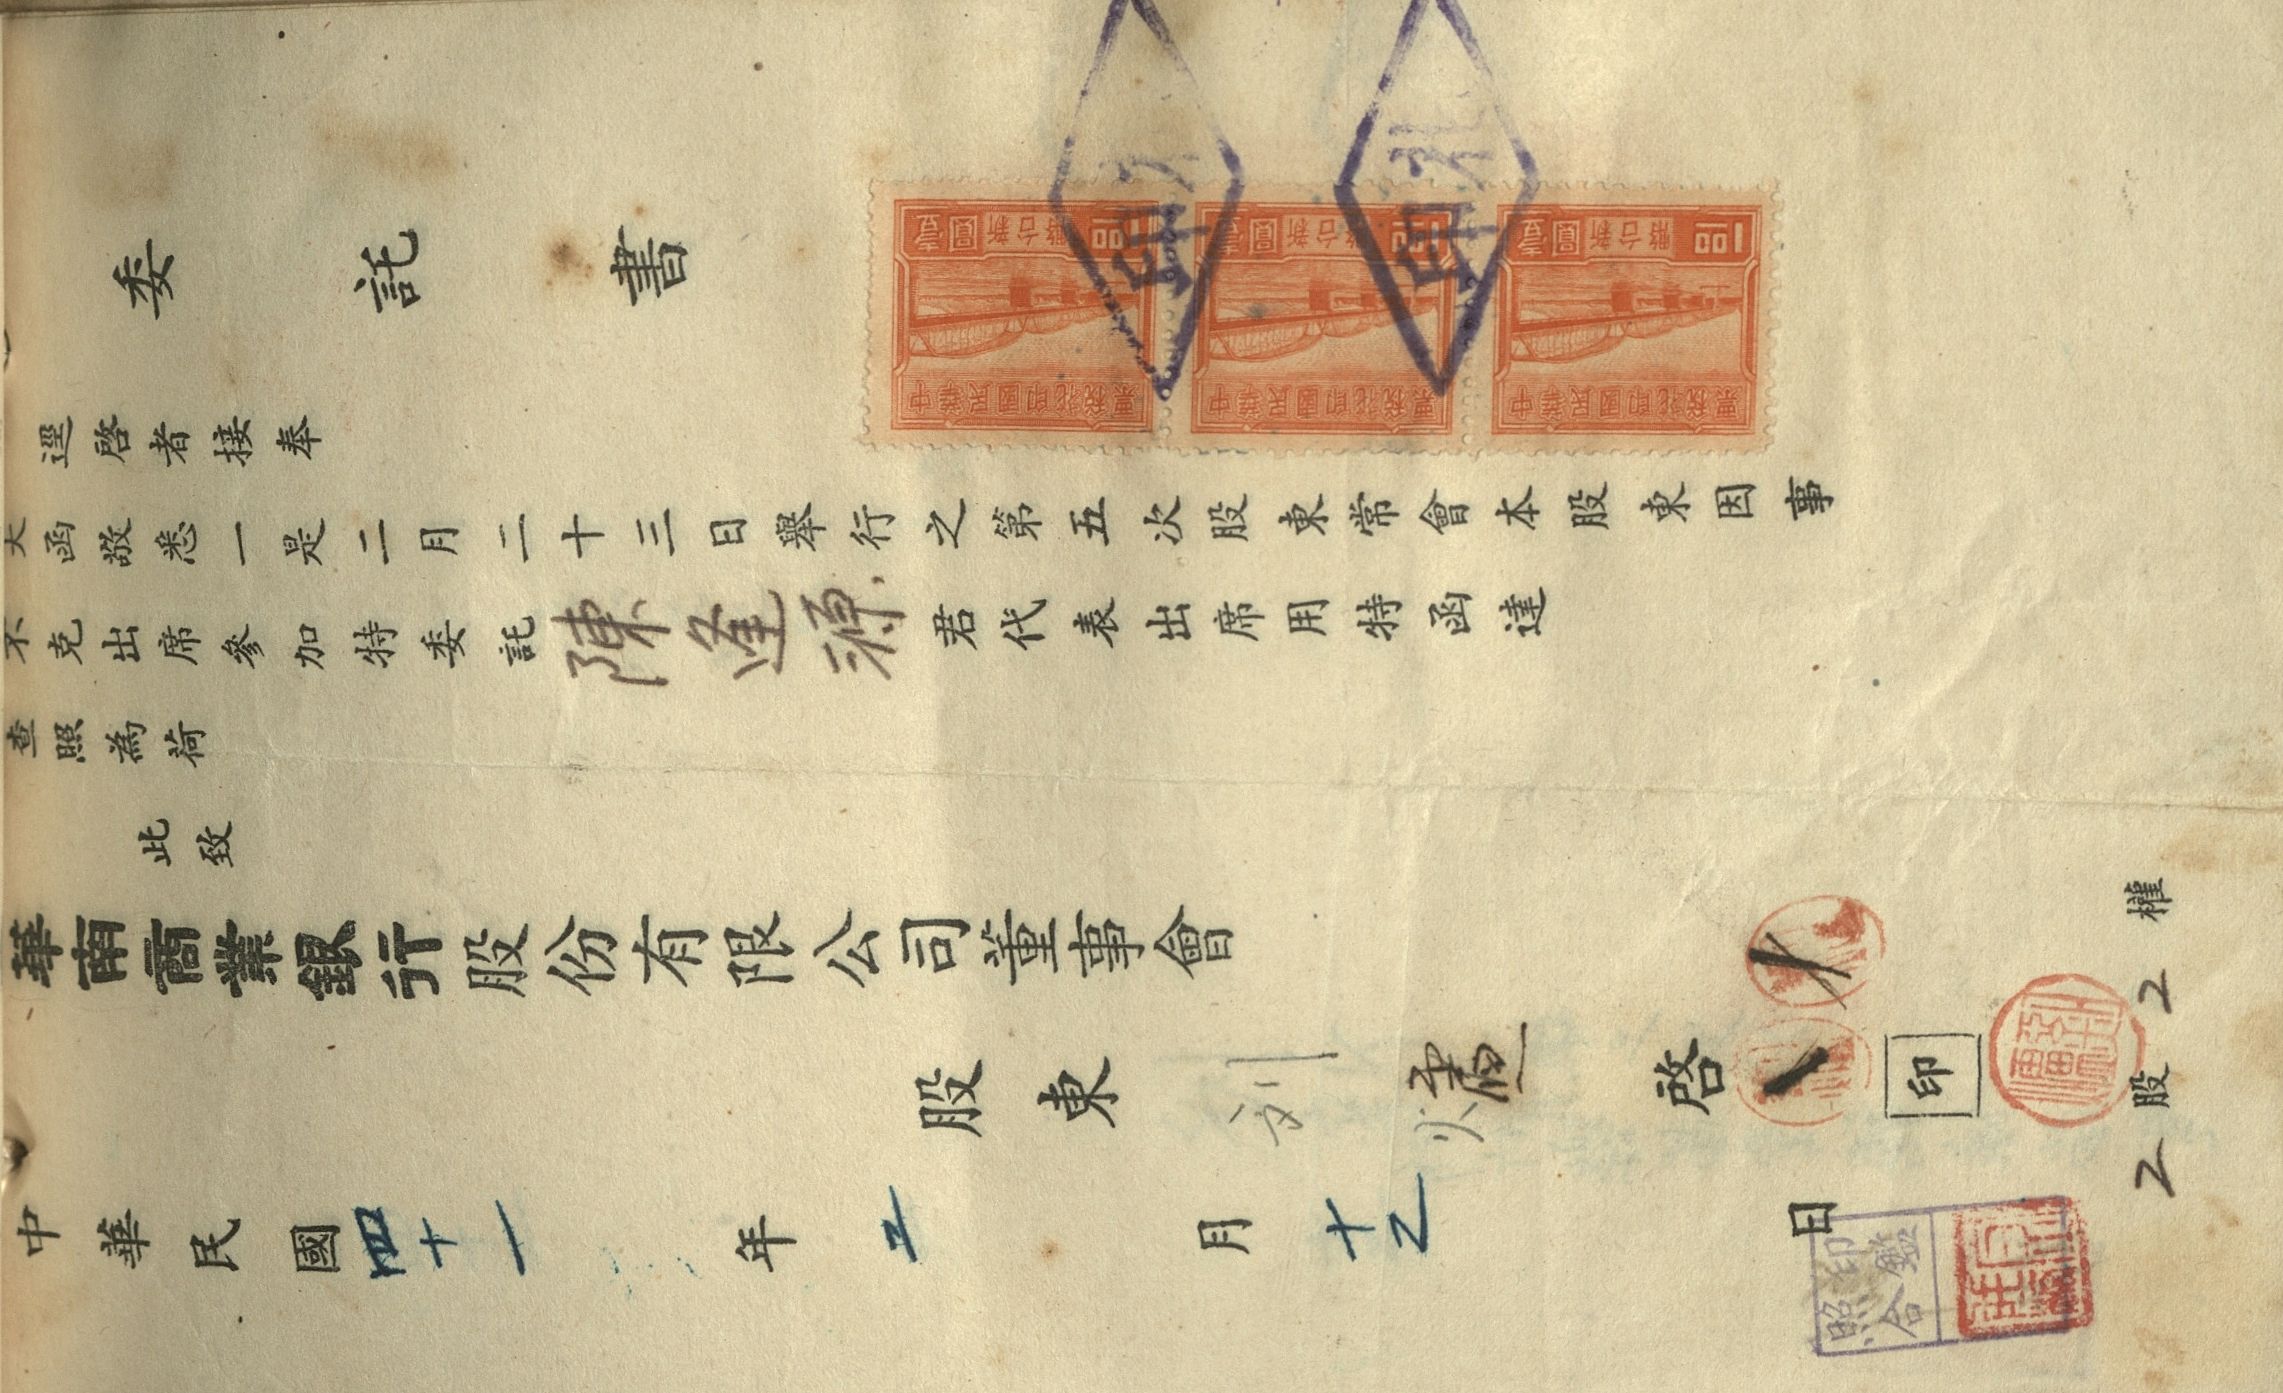 委託書
逕啓者接奉
大函敬悉一是二月二十三日舉行之第五次股東常會本股東因事
不克出席參加特委託陳逢源君代表出席用特函達
查照為荷
此致
華南商業銀行股份有限公司董事會
股東 啓
印
中華民國四十一年 月十 日
2股2權
印鑑
照合
中華民國印花稅票
新台幣壹圓
中華民國印花稅票
新台幣壹圓
中華民國印花稅票
新台幣壹圓